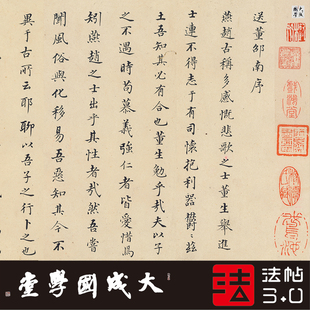 送董邵南序
燕趙古稱多感慨悲歌之士董生舉進
士連不得志于有司懷抱利器鬱鬱茲
土吾知其必有合也董生勉乎哉夫以子
之不遇時苟慕義強仁者皆愛惜焉
矧燕趙之士出乎其性者哉然吾嘗
聞風俗與化移易吾惡知其今不
異于古所云耶聊以吾子之行卜之也
大成國學堂
法
法帖
3.0